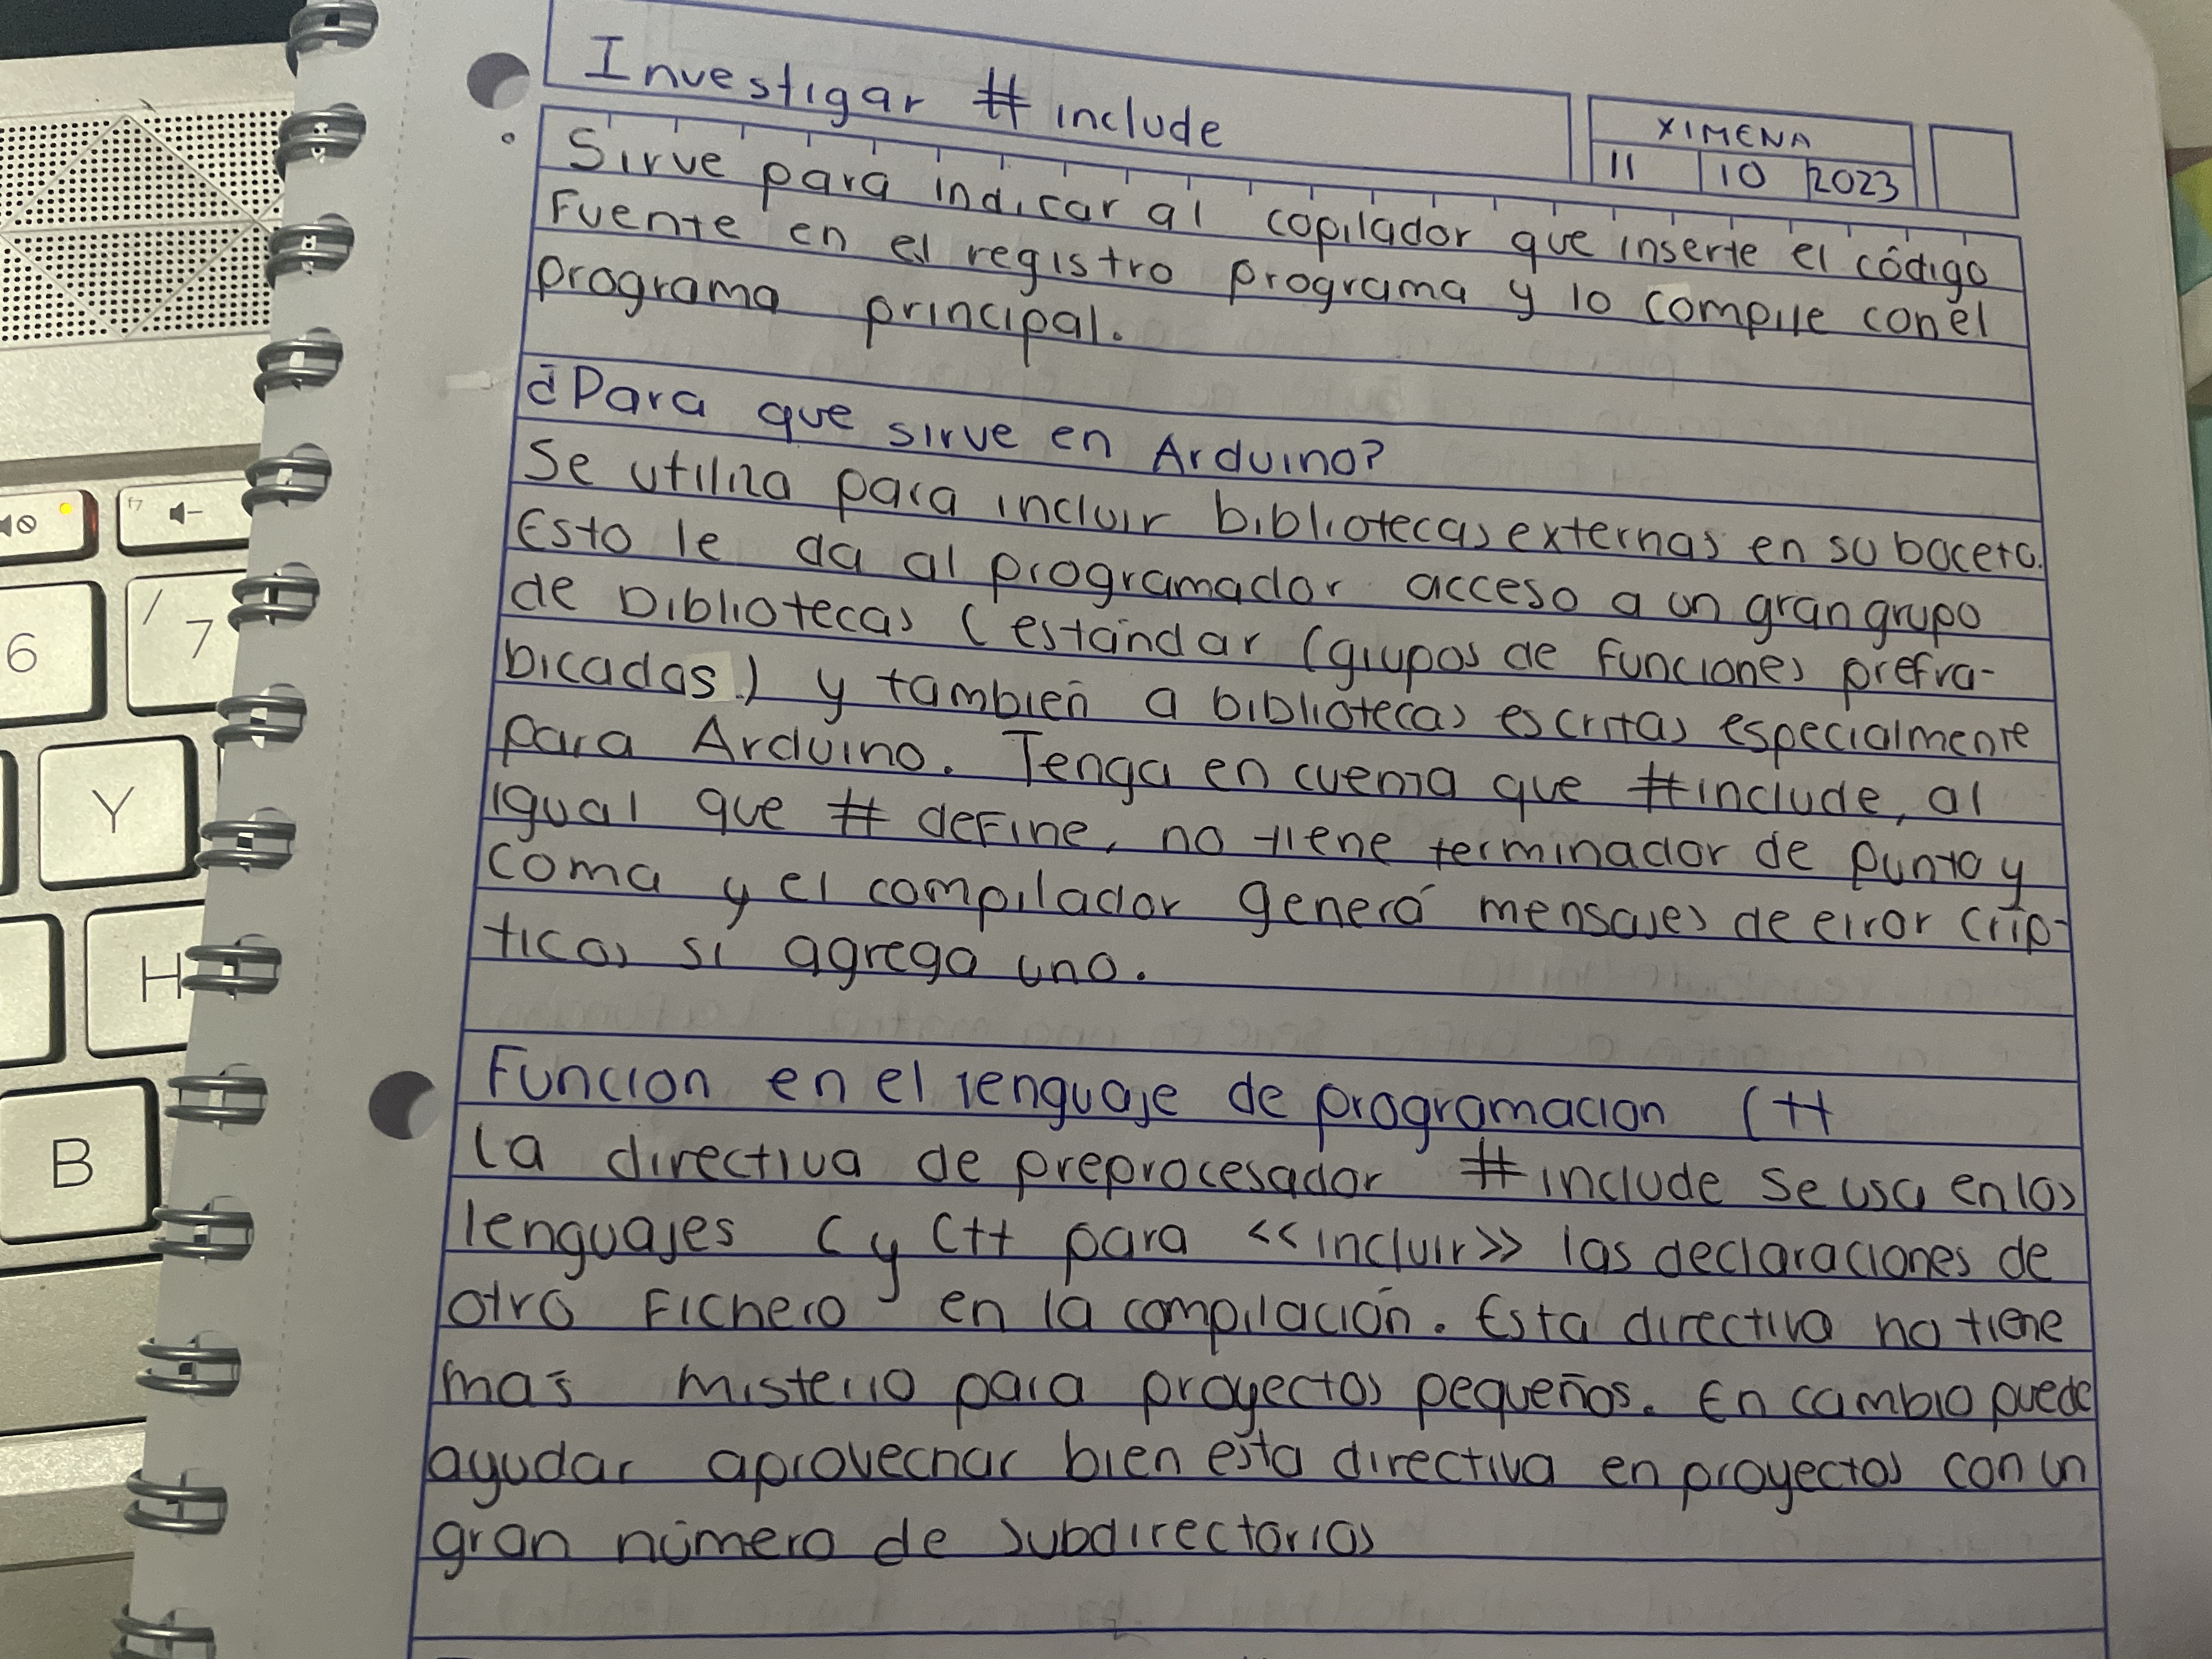 Investigar # include
XIMENA
11 10 2023
Sirve para indicar al copilador que inserte el código
Fuente en el registro programa y lo compile con el
programa principal.
¿Para que sirve en Arduino?
Se utiliza para incluir bibliotecas externas en su boceto.
Esto le da al programador acceso a un gran grupo
de bibliotecas (estándar (grupos de funciones prefra-
bicadas) y también a bibliotecas escritas especialmente
para Arduino. Tenga en cuenta que #include, al
igual que # define, no tiene terminador de punto y
coma y el compilador generá mensajes de error críp-
ticos si agrega uno.
Funcion en el lenguaje de programacion C++
La directiva de preprocesador #include se usa en los
lenguajes C y C++ para <<incluir>> las declaraciones de
otro fichero en la compilación. Esta directiva no tiene
más misterio para proyectos pequeños. En cambio puede
ayudar aprovechar bien esta directiva en proyectos con un
gran número de subdirectorios
6
/
7
Y
H
B
F7